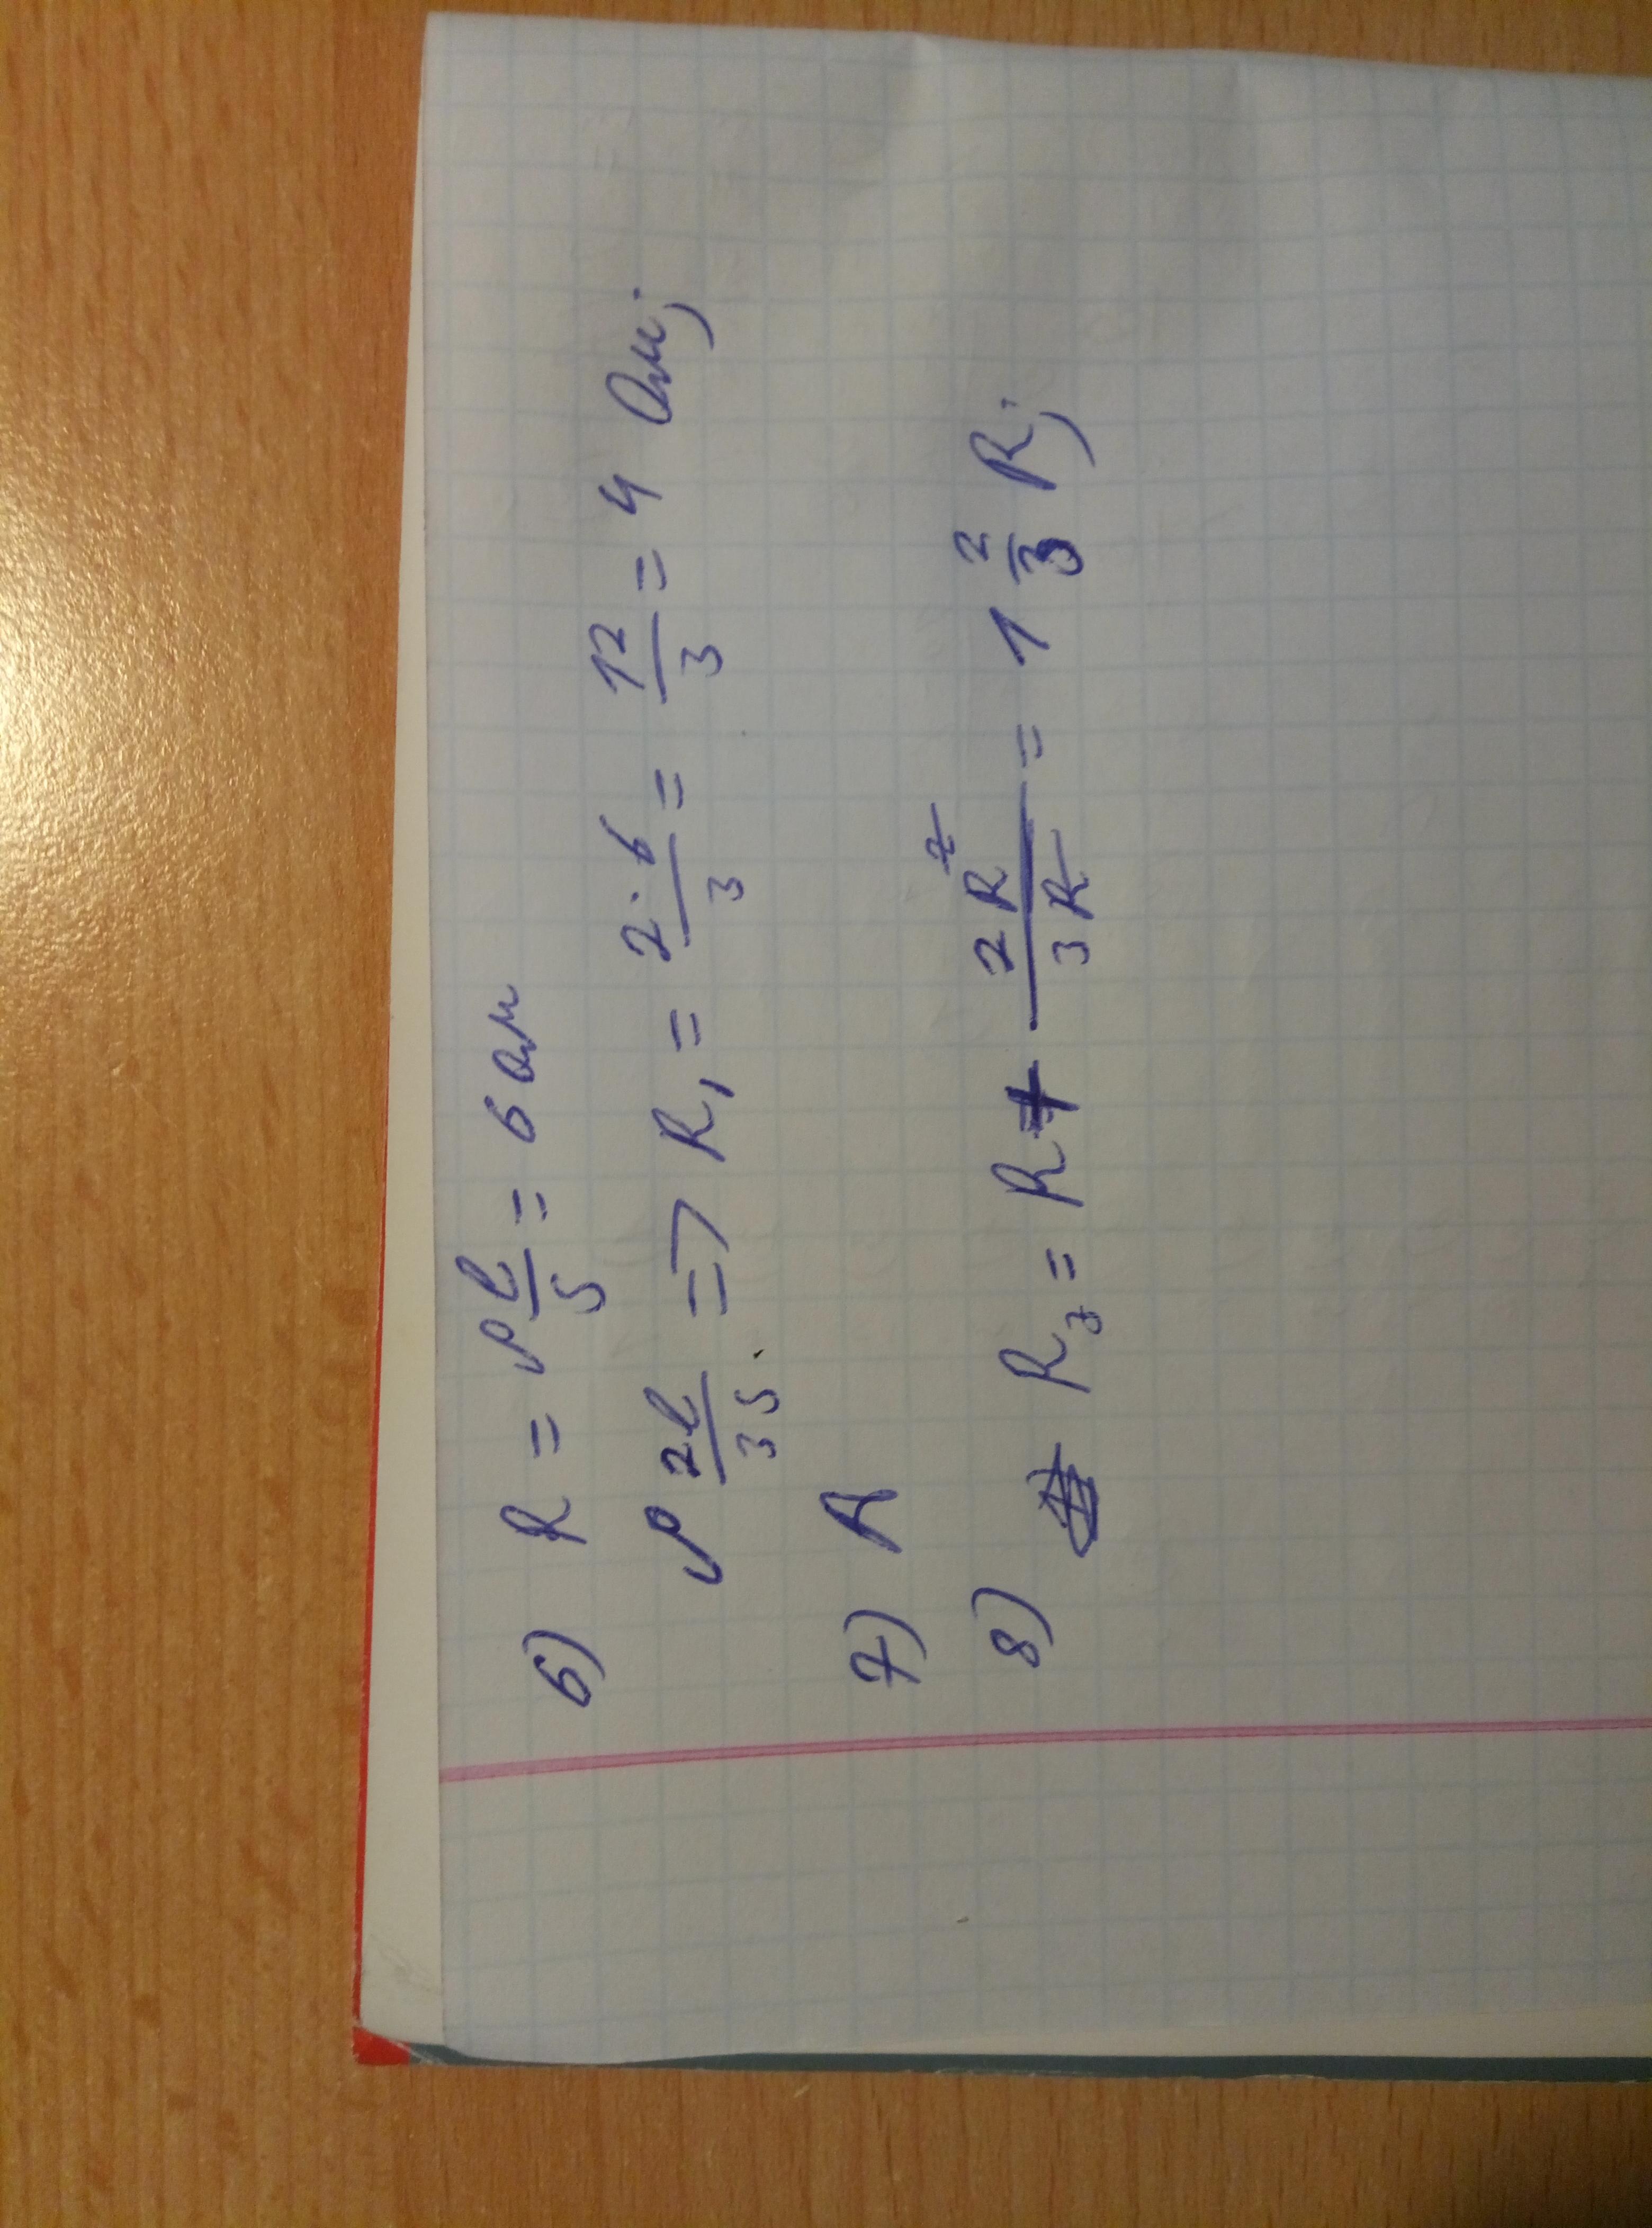 6) R = ρ l/S = 6 Ом
ρ 2l/3S => R₁ = 2·6/3 = 12/3 = 4 Ом;
7) A
8) Rз = R + 2R²/3R = 1 2/3 R;